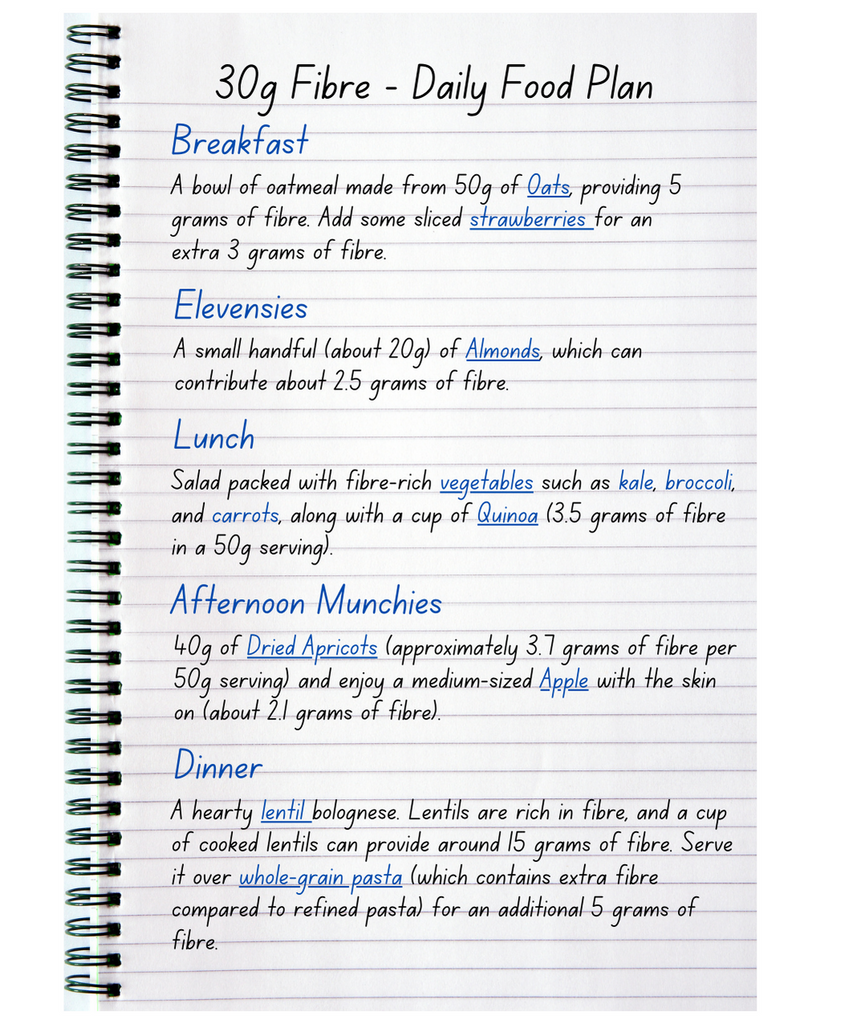 30g Fibre - Daily Food Plan
Breakfast
A bowl of oatmeal made from 50g of Oats, providing 5
grams of fibre. Add some sliced strawberries for an
extra 3 grams of fibre.
Elevensies
A small handful (about 20g) of Almonds, which can
contribute about 2.5 grams of fibre.
Lunch
Salad packed with fibre-rich vegetables such as kale, broccoli,
and carrots, along with a cup of Quinoa (3.5 grams of fibre
in a 50g serving).
Afternoon Munchies
40g of Dried Apricots (approximately 3.7 grams of fibre per
50g serving) and enjoy a medium-sized Apple with the skin
on (about 2.1 grams of fibre).
Dinner
A hearty lentil bolognese. Lentils are rich in fibre, and a cup
of cooked lentils can provide around 15 grams of fibre. Serve
it over whole-grain pasta (which contains extra fibre
compared to refined pasta) for an additional 5 grams of
fibre.